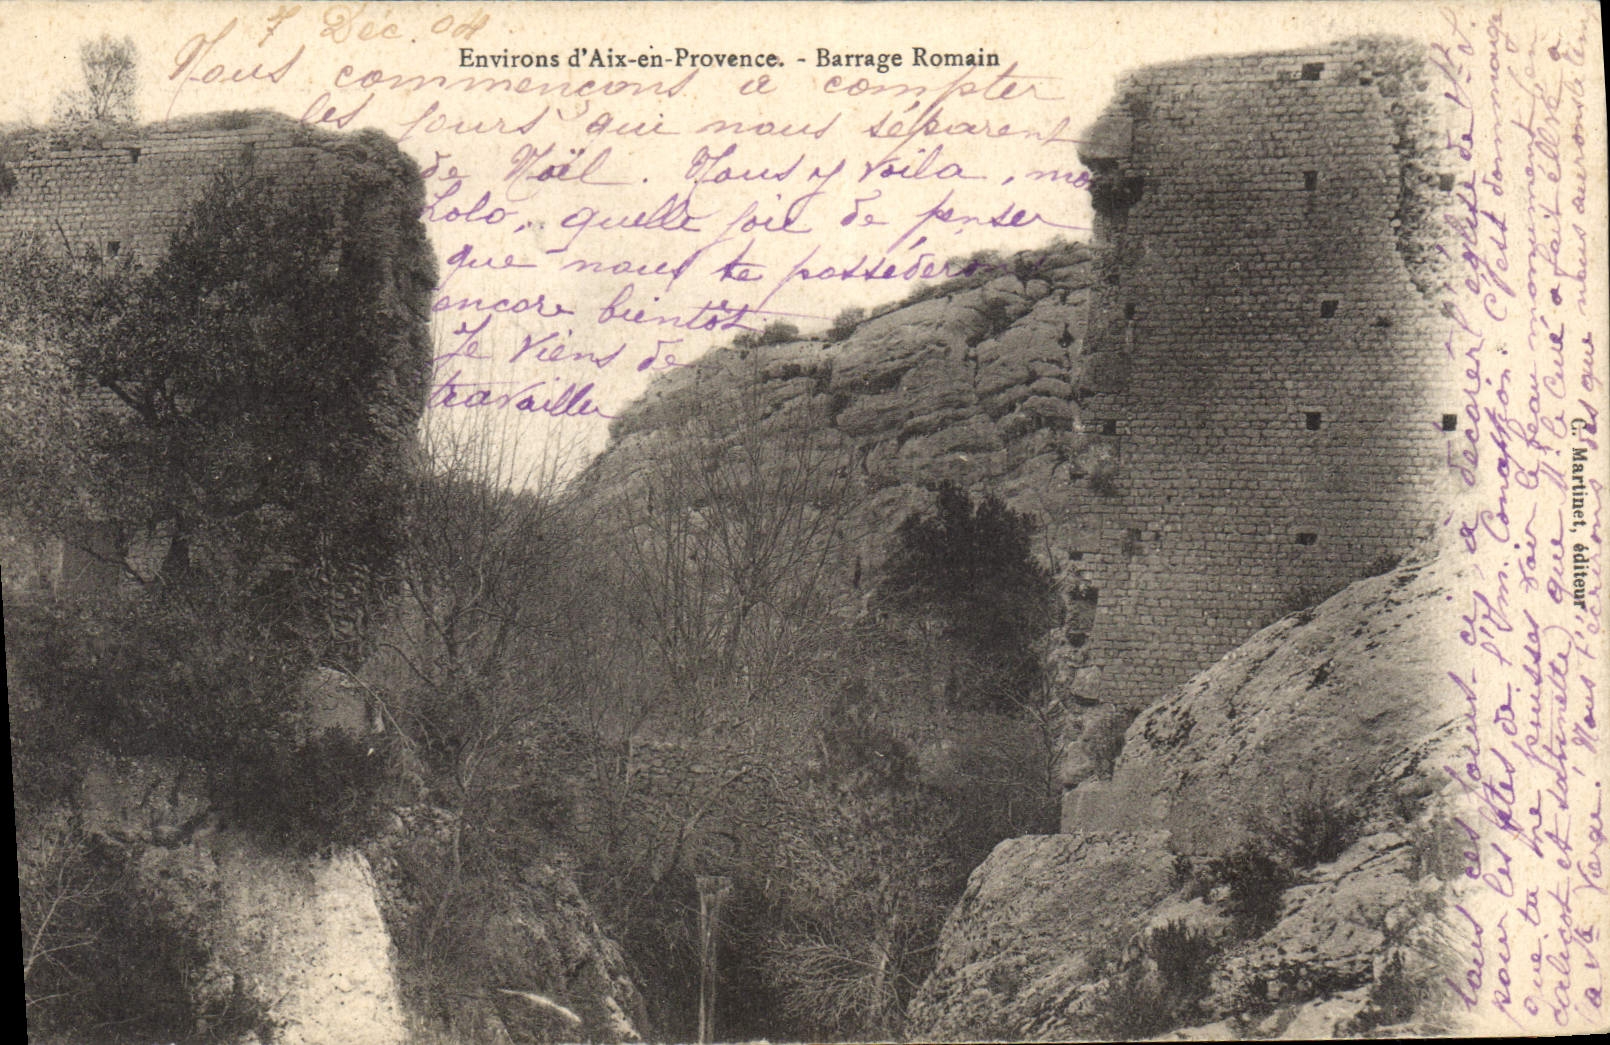 7 Déc. 04
Environs d'Aix-en-Provence. - Barrage Romain
Nous commençons à compter
les jours qui nous séparent
de Noël. Nous y voila, mo
Lolo, quelle joie de penser
que nous te posséderons
encore bientôt
Je viens de
travailler
tous ces jours-ci, à décorer l'église de St S.
pour les fêtes de l'Im. Conception. C'est dommage
que tu ne puisses voir le beau monument en
calicot et satinette que M. le Curé a fait élevé à
la Ste Vierge. Nous t'écrirons dès que nous aurons le
G. Martinet, éditeur